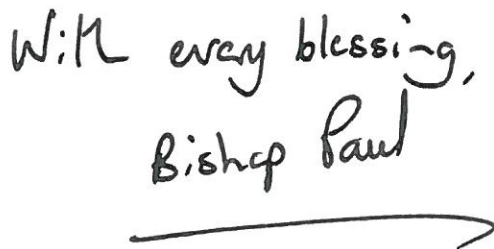 With every blessing,
Bishop Paul